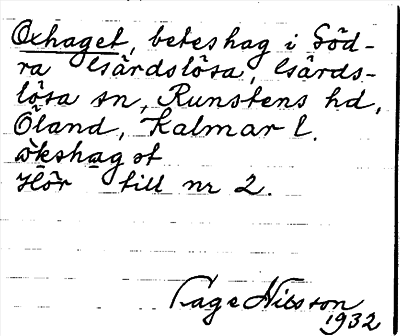 Oxhaget, beteshag i Söd-
ra Gärdslösa, Gärds-
lösa sn, Runstens hd,
Öland, Kalmar l.
ὼkshagət
Hör till nr 2.
Tage Nilsson
1932